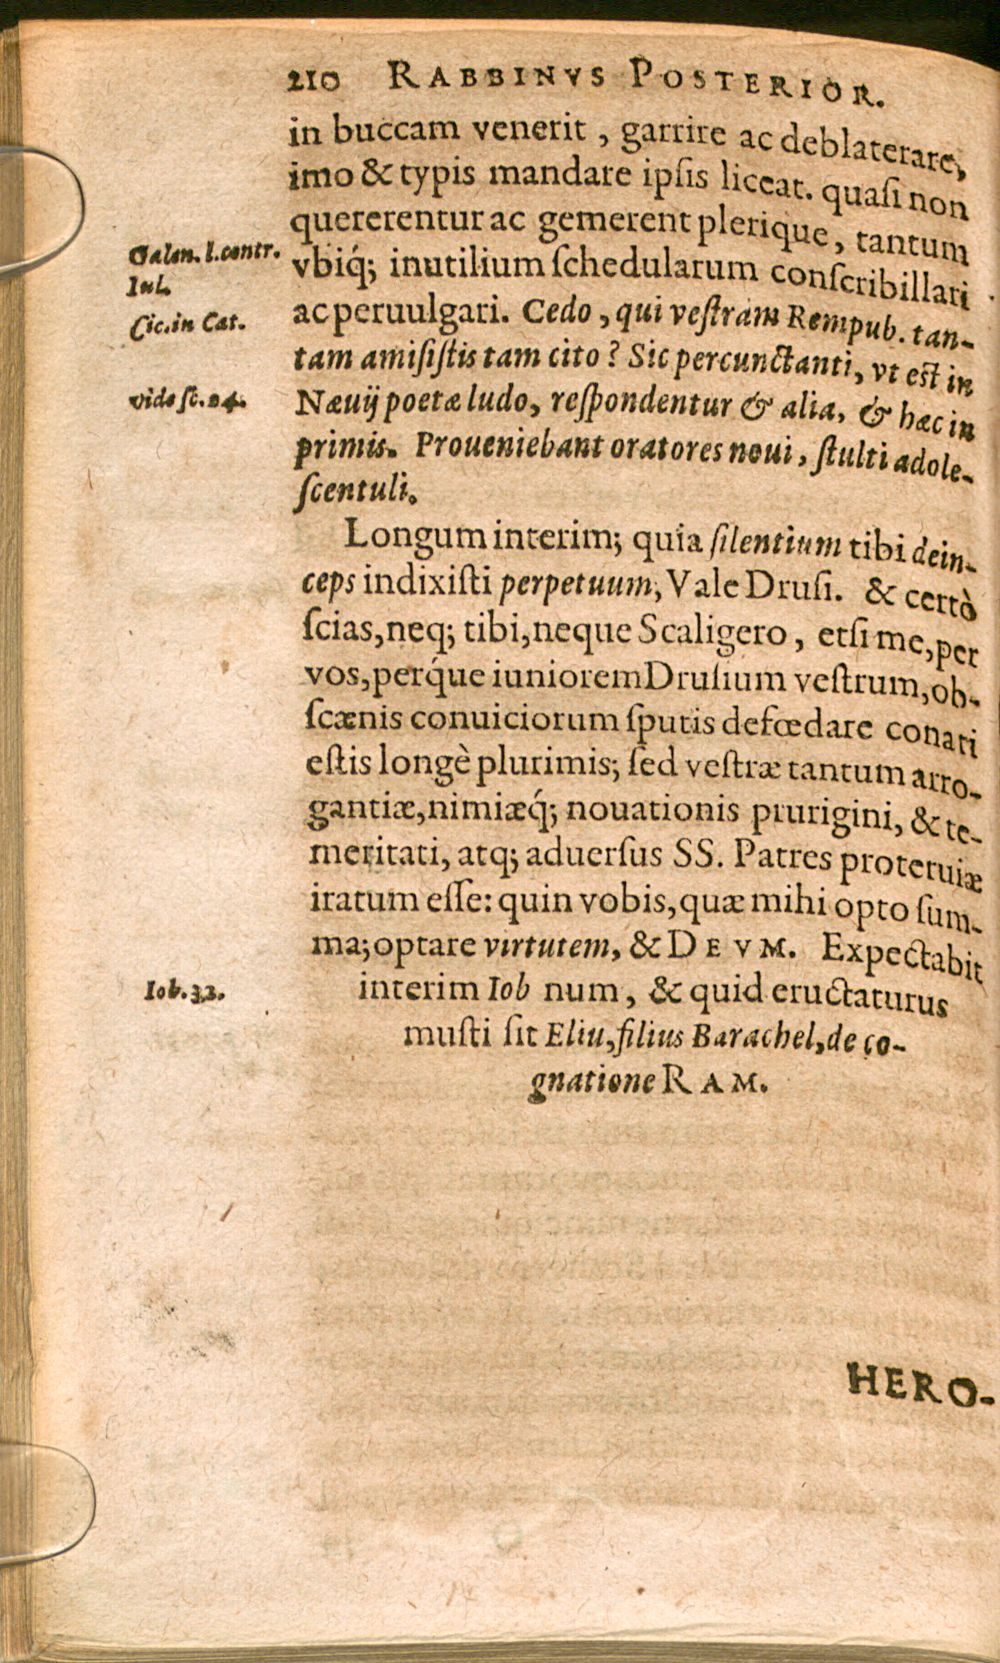 210 RABBINVS POSTERIOR.
in buccam venerit, garrire ac deblaterare,
imo & typis mandare ipſis liceat. quaſi non
quererentur ac gemerent plerique, tantum
Galen. l. contr.
Iul.
vbíq; inutilium ſchedularum conſcribillari
Cic. in Cat.
ac peruulgari. Cedo, qui veſtram Rempub. tan-
tam amiſiſtis tam cito? Sic percunctanti, vt eſt in
vide ſc. 24.
Næuij poetæ ludo, reſpondentur & alia, & hæc in
primis. Proueniebant oratores noui, ſtulti adole-
ſcentuli.
Longum interim; quia ſilentium tibi dein-
ceps indixiſti perpetuum, Vale Druſi. & certò
ſcias, neq; tibi, neque Scaligero, etſi me, per
vos, perq́ue iuniorem Druſium veſtrum, ob-
ſcænis conuiciorum ſputis defœdare conati
eſtis longè plurimis; ſed veſtræ tantum arro-
gantiæ, nimiæq́; nouationis prurigini, & te-
meritati, atq; aduerſus SS. Patres proteruiæ
iratum eſſe: quin vobis, quæ mihi opto ſum-
ma; optare virtutem, & DEVM. Expectabit
Iob. 32.
interim Iob num, & quid eructaturus
muſti ſit Eliu, filius Barachel, de co-
gnatione RAM.
HERO-